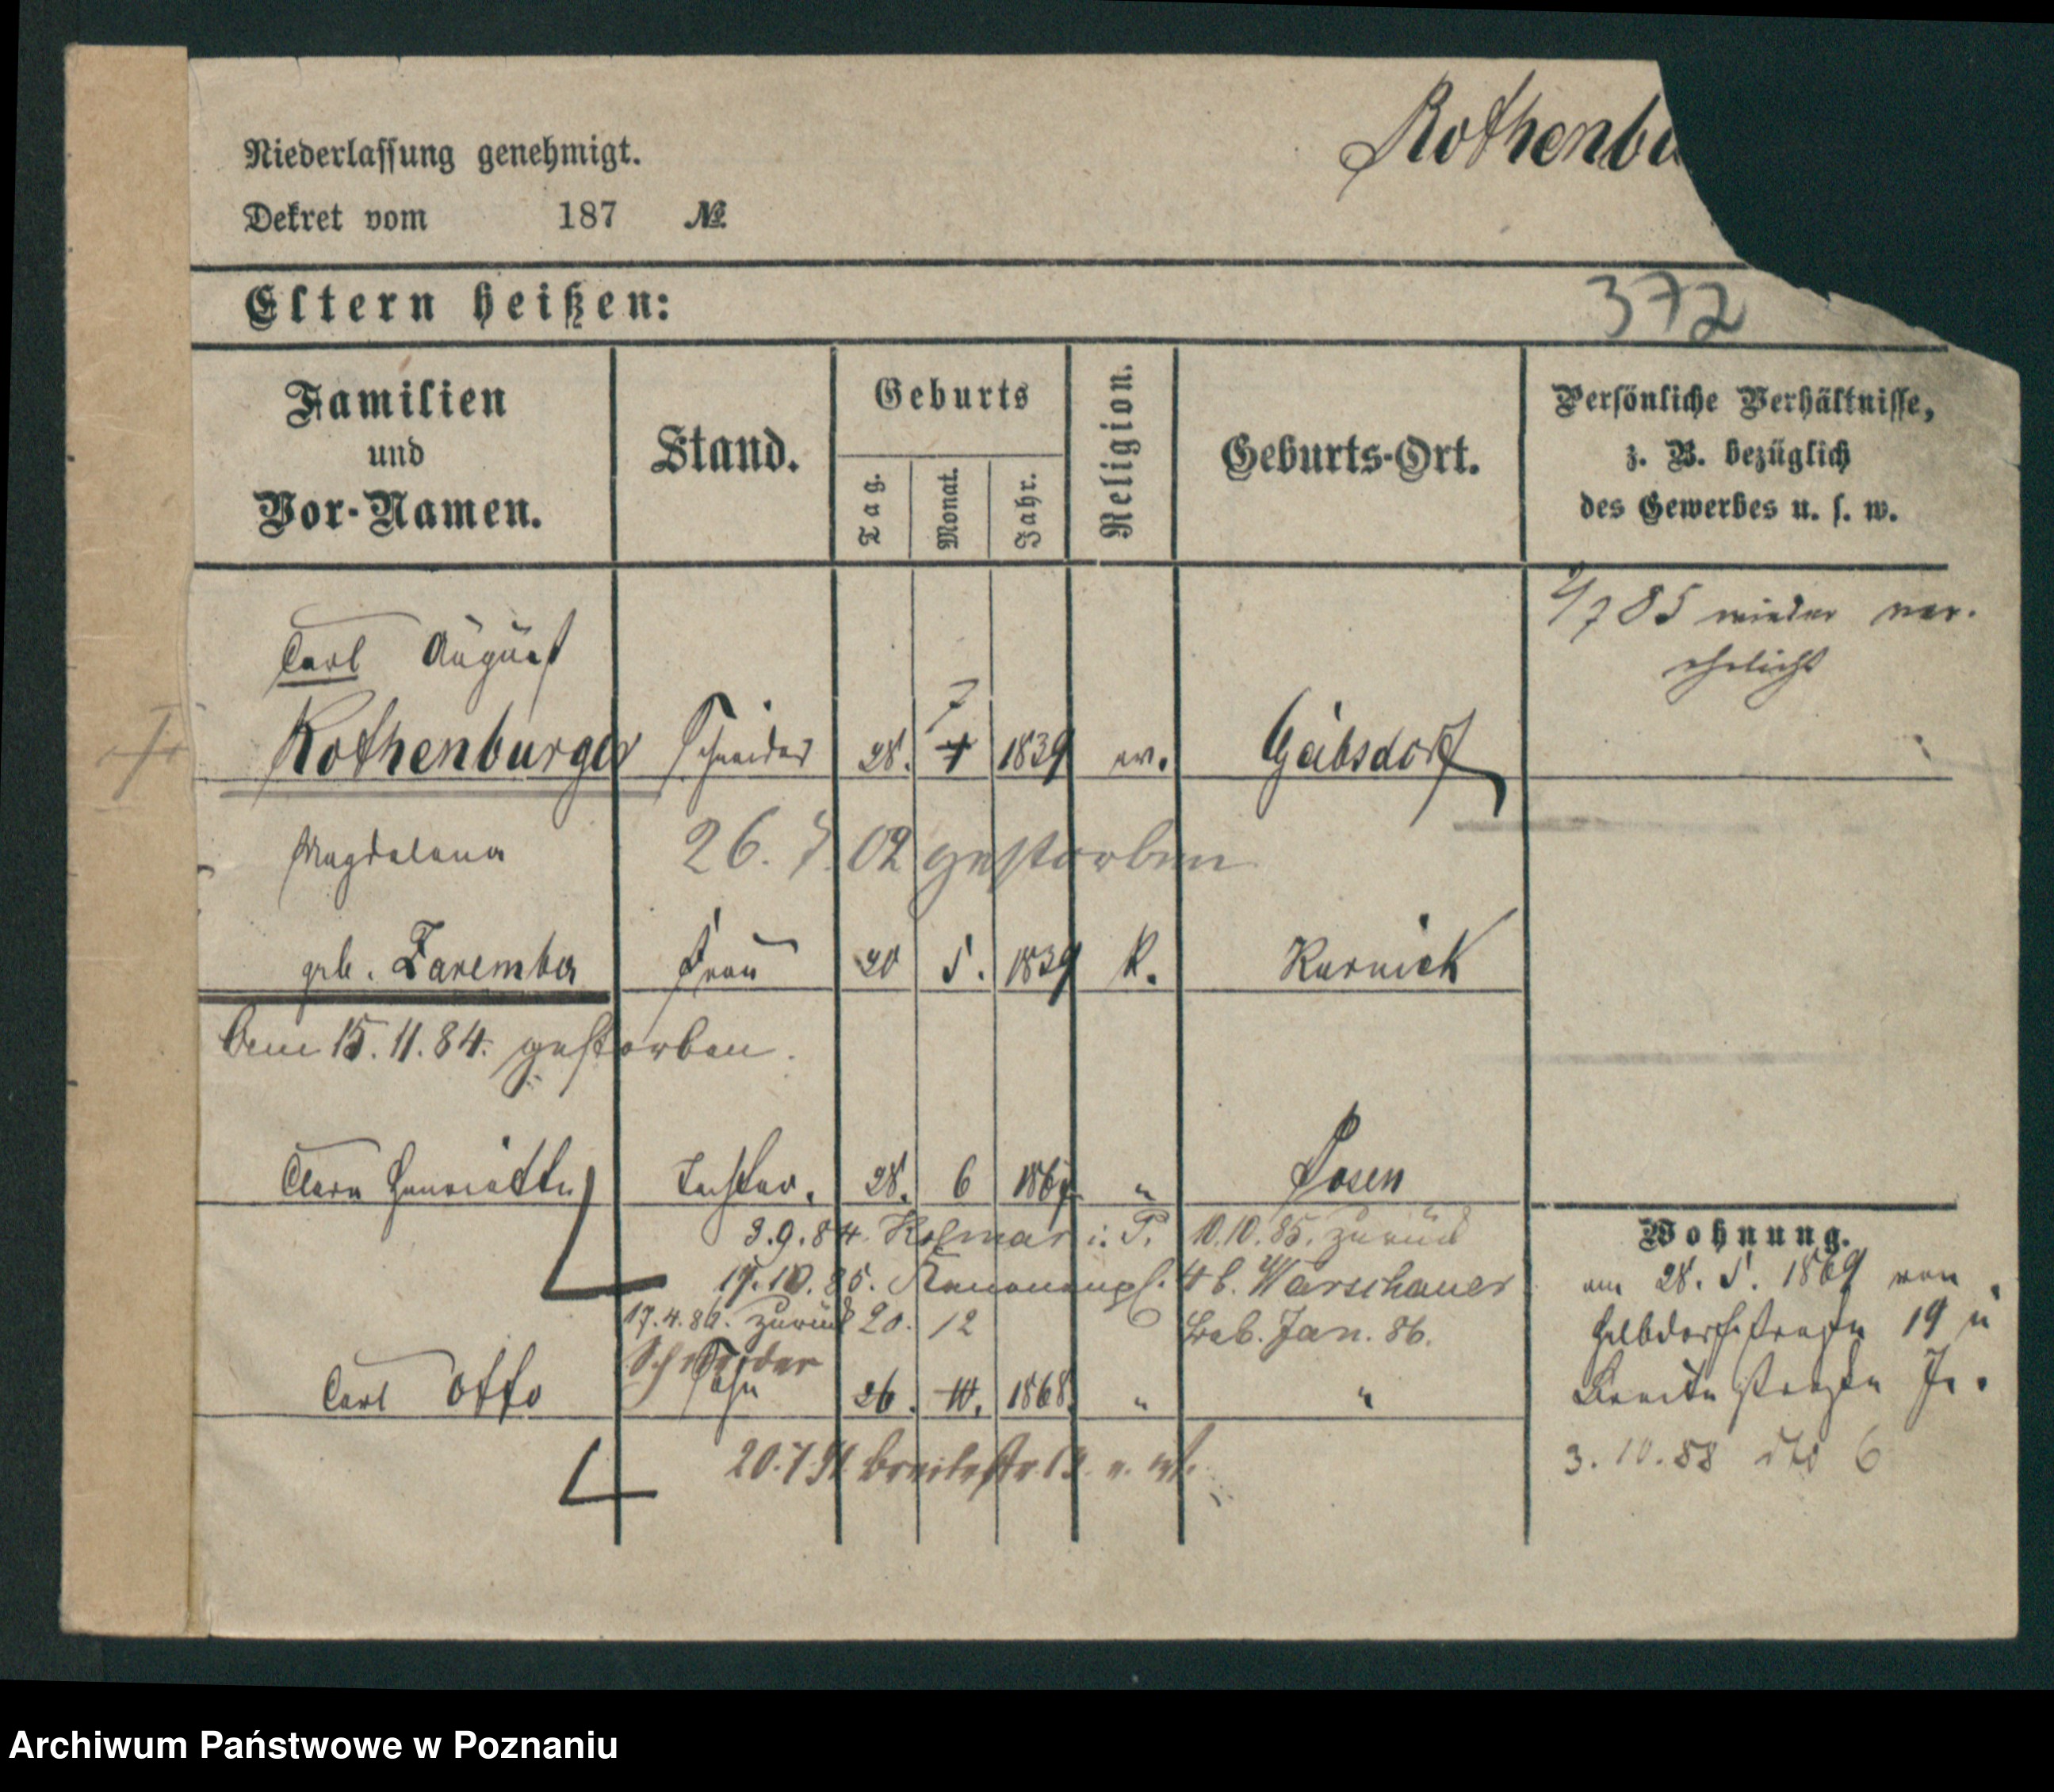 Rothenbu
Niederlassung genehmigt.
Dekret vom 187 №
Eltern heißen:
372
Familien
und
Vor-Namen.
Stand.
Geburts
Tag.
Monat.
Jahr.
Religion.
Geburts-Ort.
Persönliche Verhältnisse,
z. B. bezüglich
des Gewerbes u. s. w.
85 wieder ver-
ehelicht
Carl August
7
Rothenburger Schneider 28. 1839 ev. Geibsdorf
Magdalena
26. 7. 02 gestorben
geb. Zaremba Frau 20 5. 1839 K. Kurnick
Am 15.11.84. gestorben.
Clara Henriette Tochter. 28. 6 1867 " Posen
3.9.84. Kolmar i. P. 10.10.85. zurück
17.10.85. b. Warschauer
17.4.86. zurück 20. 12 Jan. 86.
Schneider
Carl Otto Sohn 26. 1868. " "
20.7.91. Breitestr.
Wohnung.
am 28. 5. 1869 von
Halbdorfstraße 19 in
Breite Straße
3.10.88 dto 6
Archiwum Państwowe w Poznaniu